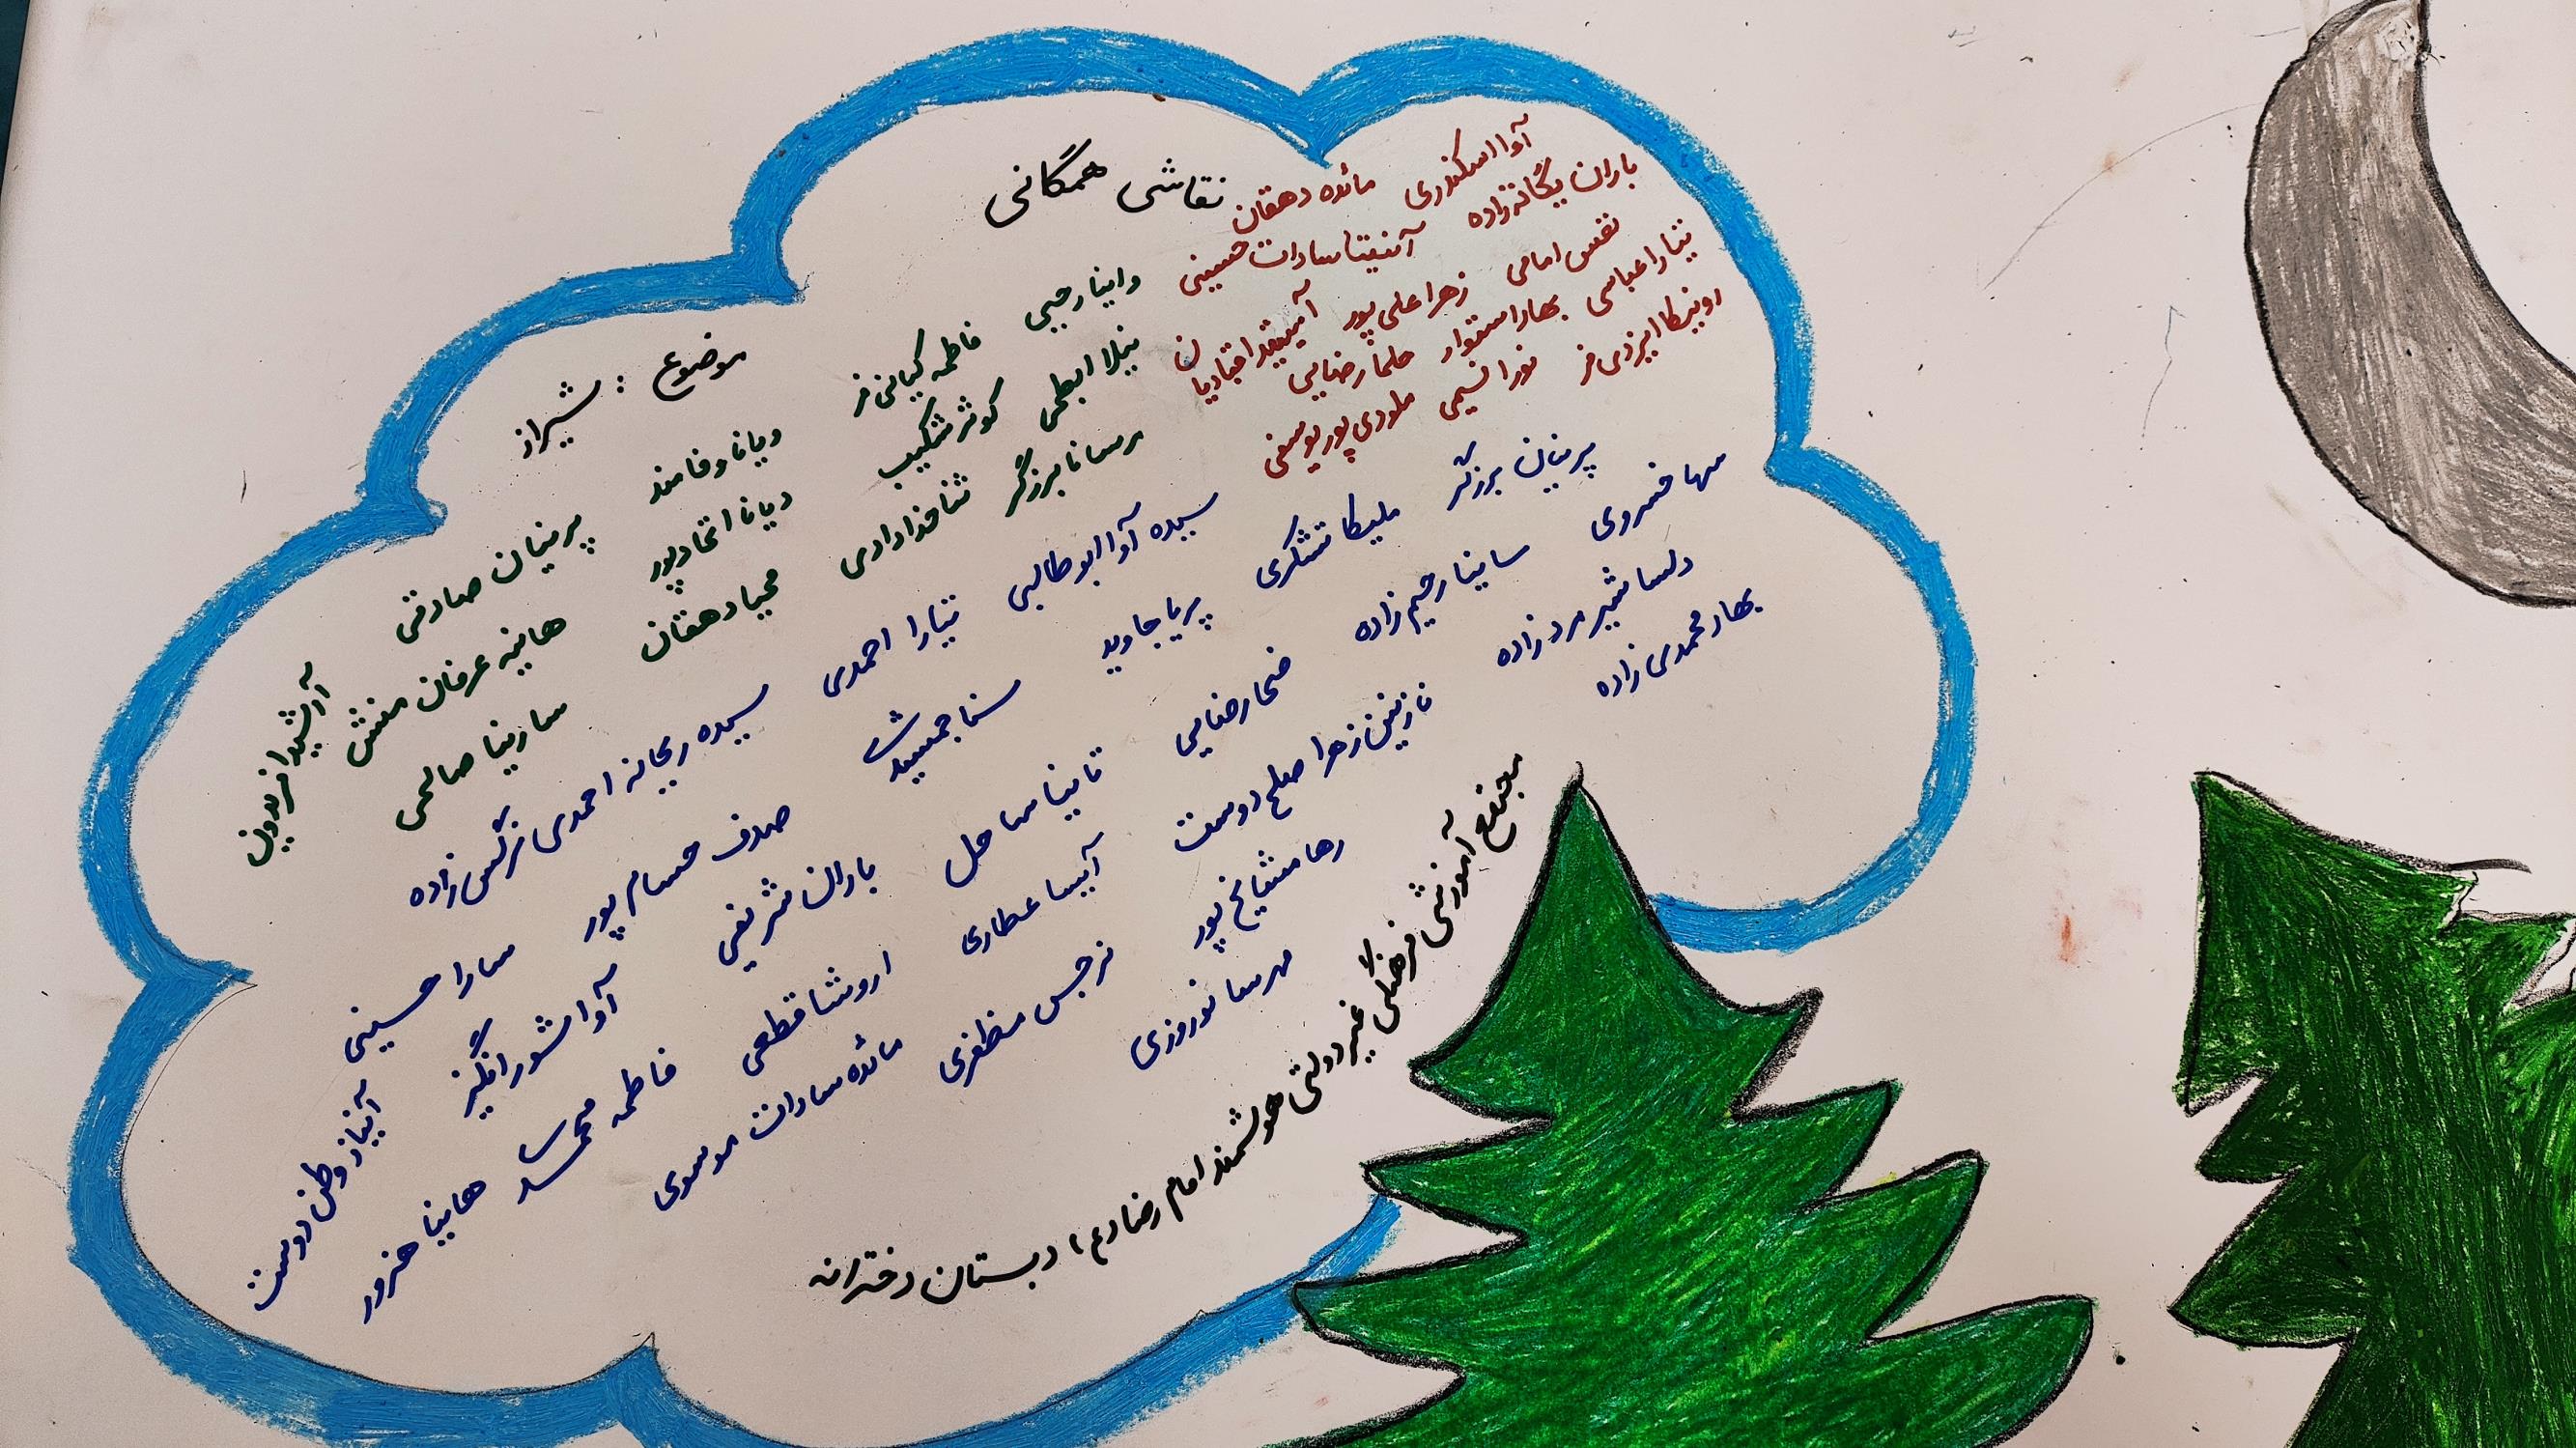 نقاشی همگانی
موضوع : شیراز
آوا اسکندری مائده دهقان
باران یگانه‌زاده آنیتا سادات حسینی
نفس امامی زهرا علی‌پور
تینارا عباسی بهار استوار حلما رضایی
روینکا ایزدی‌فر نورا نسیمی ملودی پوریوسفی
واینا رجبی فاطمه کیانی‌فر ویانا وفامند پرنیان صادقی
نیلا ابطحی کوثر شکیب دیانا اتحادپور هانیه عرفان منش
برسانا برزگر ثنا خدادادی محیا دهقان سارینا صالحی
سیده آوا ابوطالبی تینارا احمدی سیده ریحانه احمدی نرگس‌زاده
پرنیان برزگر ملیکا تشکری پریا جاوید سنا جمشیدی صدف حسام‌پور سارا حسینی
مها خسروی ساینا رحیم‌زاده ضحا رضایی تابینا ساحل باران شریفی آوا شورانگیز
دلسا شیرمردزاده نازنین زهرا صلح‌دوست آیسا عطاری اروشا قطعی فاطمه
بهار محمدی‌زاده رها مشایخ‌پور نرجس مظفری مائده سادات موسوی
مهرسا نوروزی هابینا هنرور
وطن‌دوست
مجتمع آموزشی فرهنگی غیردولتی هوشمند امام رضا (ع)، دبستان دخترانه